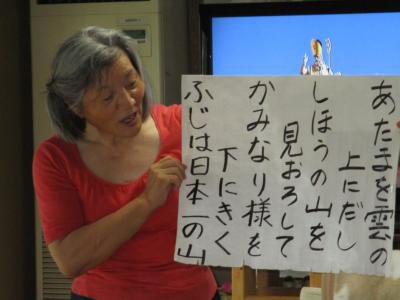 あたまを雲の
上にだし
しほうの山を
見おろして
かみなり様を
下にきく
ふじは日本一の山